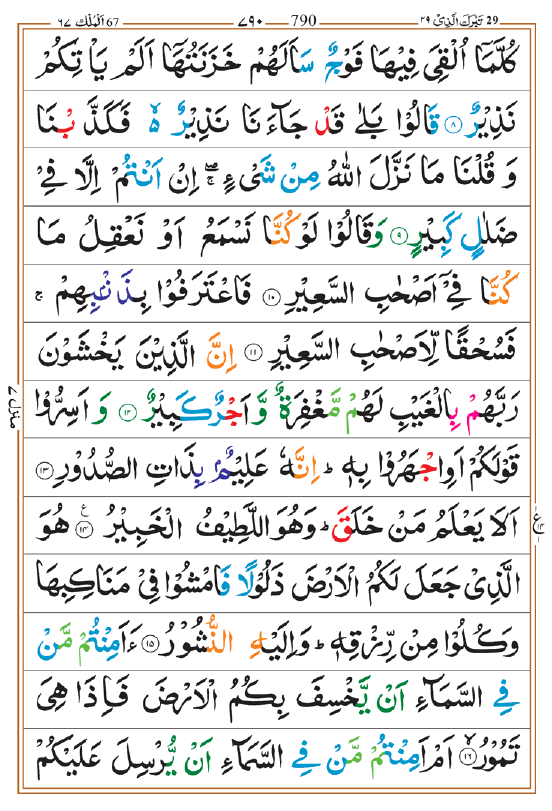 ٦٧ اَلْمُلْك 67 ٧٩٠ 790 ٢٩ تَبٰرَكَ الَّذِىْ 29
كُلَّمَاۤ اُلْقِىَ فِيْهَا فَوْجٌ سَاَلَهُمْ خَزَنَتُهَاۤ اَلَمْ يَاْتِكُمْ
نَذِيْرٌ ﴿٨﴾ قَالُوْا بَلٰى قَدْ جَآءَنَا نَذِيْرٌ ۙ فَكَذَّبْنَا
وَ قُلْنَا مَا نَزَّلَ اللّٰهُ مِنْ شَىْءٍ ۖۚ اِنْ اَنْتُمْ اِلَّا فِىْ
ضَلٰلٍ كَبِيْرٍ ﴿٩﴾ وَقَالُوْا لَوْ كُنَّا نَسْمَعُ اَوْ نَعْقِلُ مَا
كُنَّا فِىْۤ اَصْحٰبِ السَّعِيْرِ ﴿١٠﴾ فَاعْتَرَفُوْا بِذَنْۢبِهِمْ ۚ
فَسُحْقًا لِّاَصْحٰبِ السَّعِيْرِ ﴿١١﴾ اِنَّ الَّذِيْنَ يَخْشَوْنَ
رَبَّهُمْ بِالْغَيْبِ لَهُمْ مَّغْفِرَةٌ وَّ اَجْرٌ كَبِيْرٌ ﴿١٢﴾ وَ اَسِرُّوْا
منزل ٧
قَوْلَكُمْ اَوِاجْهَرُوْا بِهٖ ؕ اِنَّهٗ عَلِيْمٌۢ بِذَاتِ الصُّدُوْرِ ﴿١٣﴾
اَلَا يَعْلَمُ مَنْ خَلَقَ ؕ وَهُوَ اللَّطِيْفُ الْخَبِيْرُ ﴿١٤﴾ هُوَ
الَّذِىْ جَعَلَ لَكُمُ الْاَرْضَ ذَلُوْلًا فَامْشُوْا فِىْ مَنَاكِبِهَا
وَكُلُوْا مِنْ رِّزْقِهٖ ؕ وَاِلَيْهِ النُّشُوْرُ ﴿١٥﴾ ءَاَمِنْتُمْ مَّنْ
فِى السَّمَآءِ اَنْ يَّخْسِفَ بِكُمُ الْاَرْضَ فَاِذَا هِىَ
تَمُوْرُ ۙ ﴿١٦﴾ اَمْ اَمِنْتُمْ مَّنْ فِى السَّمَآءِ اَنْ يُّرْسِلَ عَلَيْكُمْ